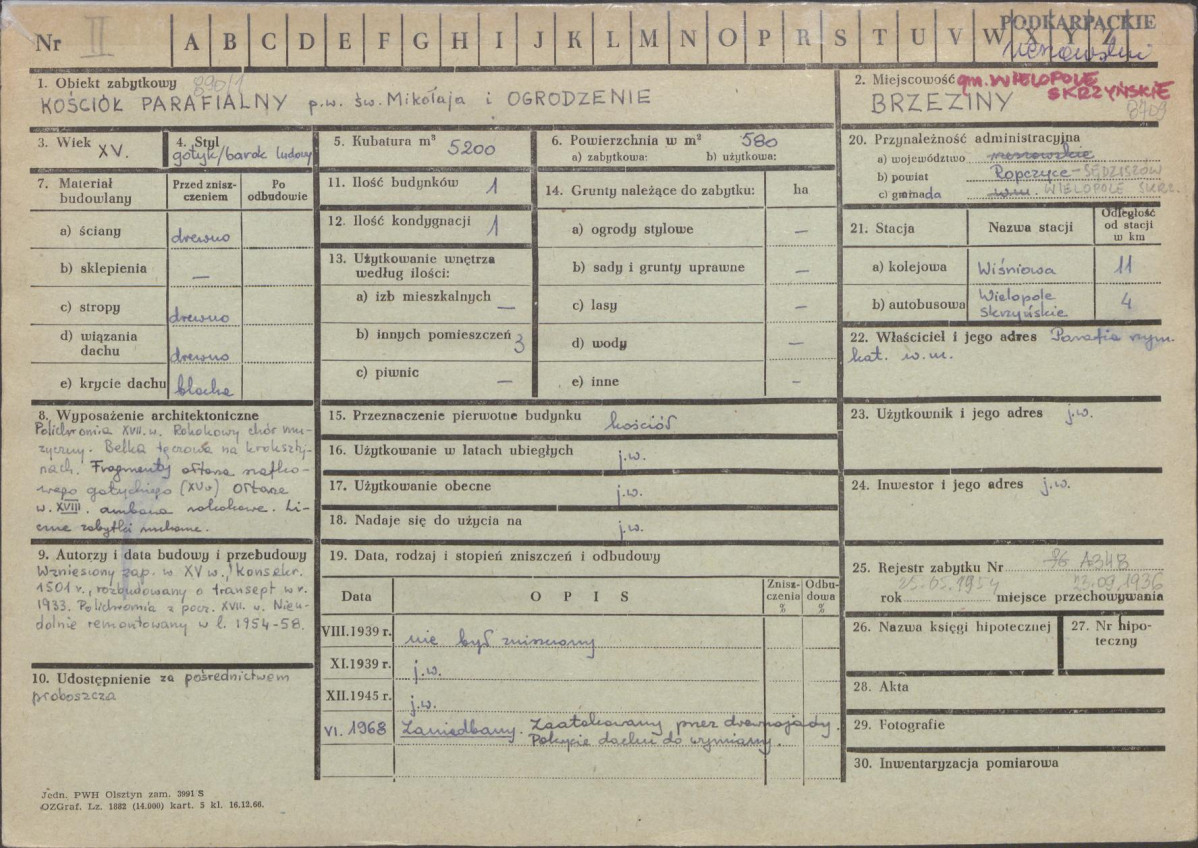 PODKARPACKIE
Nr II A B C D E F G H I J K L M N O P R S T U V W X Y Z
rzeszowskie
1. Obiekt zabytkowy 890/1
KOŚCIÓŁ PARAFIALNY p.w. św. Mikołaja i OGRODZENIE
2. Miejscowość gm. WIELOPOLE SKRZYŃSKIE
BRZEZINY 8709
3. Wiek XV.
4. Styl
gotyk/barok ludowy
5. Kubatura m³ 5200
6. Powierzchnia w m² 580
a) zabytkowa: b) użytkowa:
7. Materiał budowlany
Przed zniszczeniem
Po odbudowie
a) ściany drewno
b) sklepienia —
c) stropy drewno
d) wiązania dachu drewno
e) krycie dachu blacha
8. Wyposażenie architektoniczne
Polichromia XVII. w. Rokokowy chór mu-
zyczny. Belka tęczowa na kroksztyn-
nach. Fragmenty ołtarza szafko-
wego gotyckiego (XVw) Ołtarze
w. XVIII. ambona rokokowe. Li-
czne zabytki ruchome.
9. Autorzy i data budowy i przebudowy
Wzniesiony zap. w XV w., konsekr.
1501 r., rozbudowany o transept w r.
1933. Polichromia z pocz. XVII. w. Nieu-
dolnie remontowany w l. 1954-58.
10. Udostępnienie za pośrednictwem
proboszcza
11. Ilość budynków 1
12. Ilość kondygnacji 1
13. Użytkowanie wnętrza według ilości:
a) izb mieszkalnych —
b) innych pomieszczeń 3
c) piwnic —
14. Grunty należące do zabytku: ha
a) ogrody stylowe —
b) sady i grunty uprawne —
c) lasy —
d) wody —
e) inne —
15. Przeznaczenie pierwotne budynku kościół
16. Użytkowanie w latach ubiegłych j.w.
17. Użytkowanie obecne j.w.
18. Nadaje się do użycia na j.w.
19. Data, rodzaj i stopień zniszczeń i odbudowy
Data
O P I S
Zniszczenia %
Odbudowa %
VIII.1939 r. nie był zniszczony
XI.1939 r. j.w.
XII.1945 r. j.w.
VI. 1968 Zaniedbany. Zaatakowany przez drewnojady.
Pokrycie dachu do wymiany.
20. Przynależność administracyjna
a) województwo rzeszowskie
b) powiat Ropczyce-SĘDZISZÓW
c) gromada w.m. WIELOPOLE SKRZ.
21. Stacja
Nazwa stacji
Odległość od stacji w km
a) kolejowa Wiśniowa 11
b) autobusowa Wielopole Skrzyńskie 4
22. Właściciel i jego adres Parafia rzym.
kat. w.m.
23. Użytkownik i jego adres j.w.
24. Inwestor i jego adres j.w.
25. Rejestr zabytku Nr A348
25.05.1954 23.09.1936
rok miejsce przechowywania
26. Nazwa księgi hipotecznej
27. Nr hipoteczny
28. Akta
29. Fotografie
30. Inwentaryzacja pomiarowa
Jedn. PWH Olsztyn zam. 3991 S
OZGraf. Lz. 1882 (14.000) kart. 5 kl. 16.12.66.